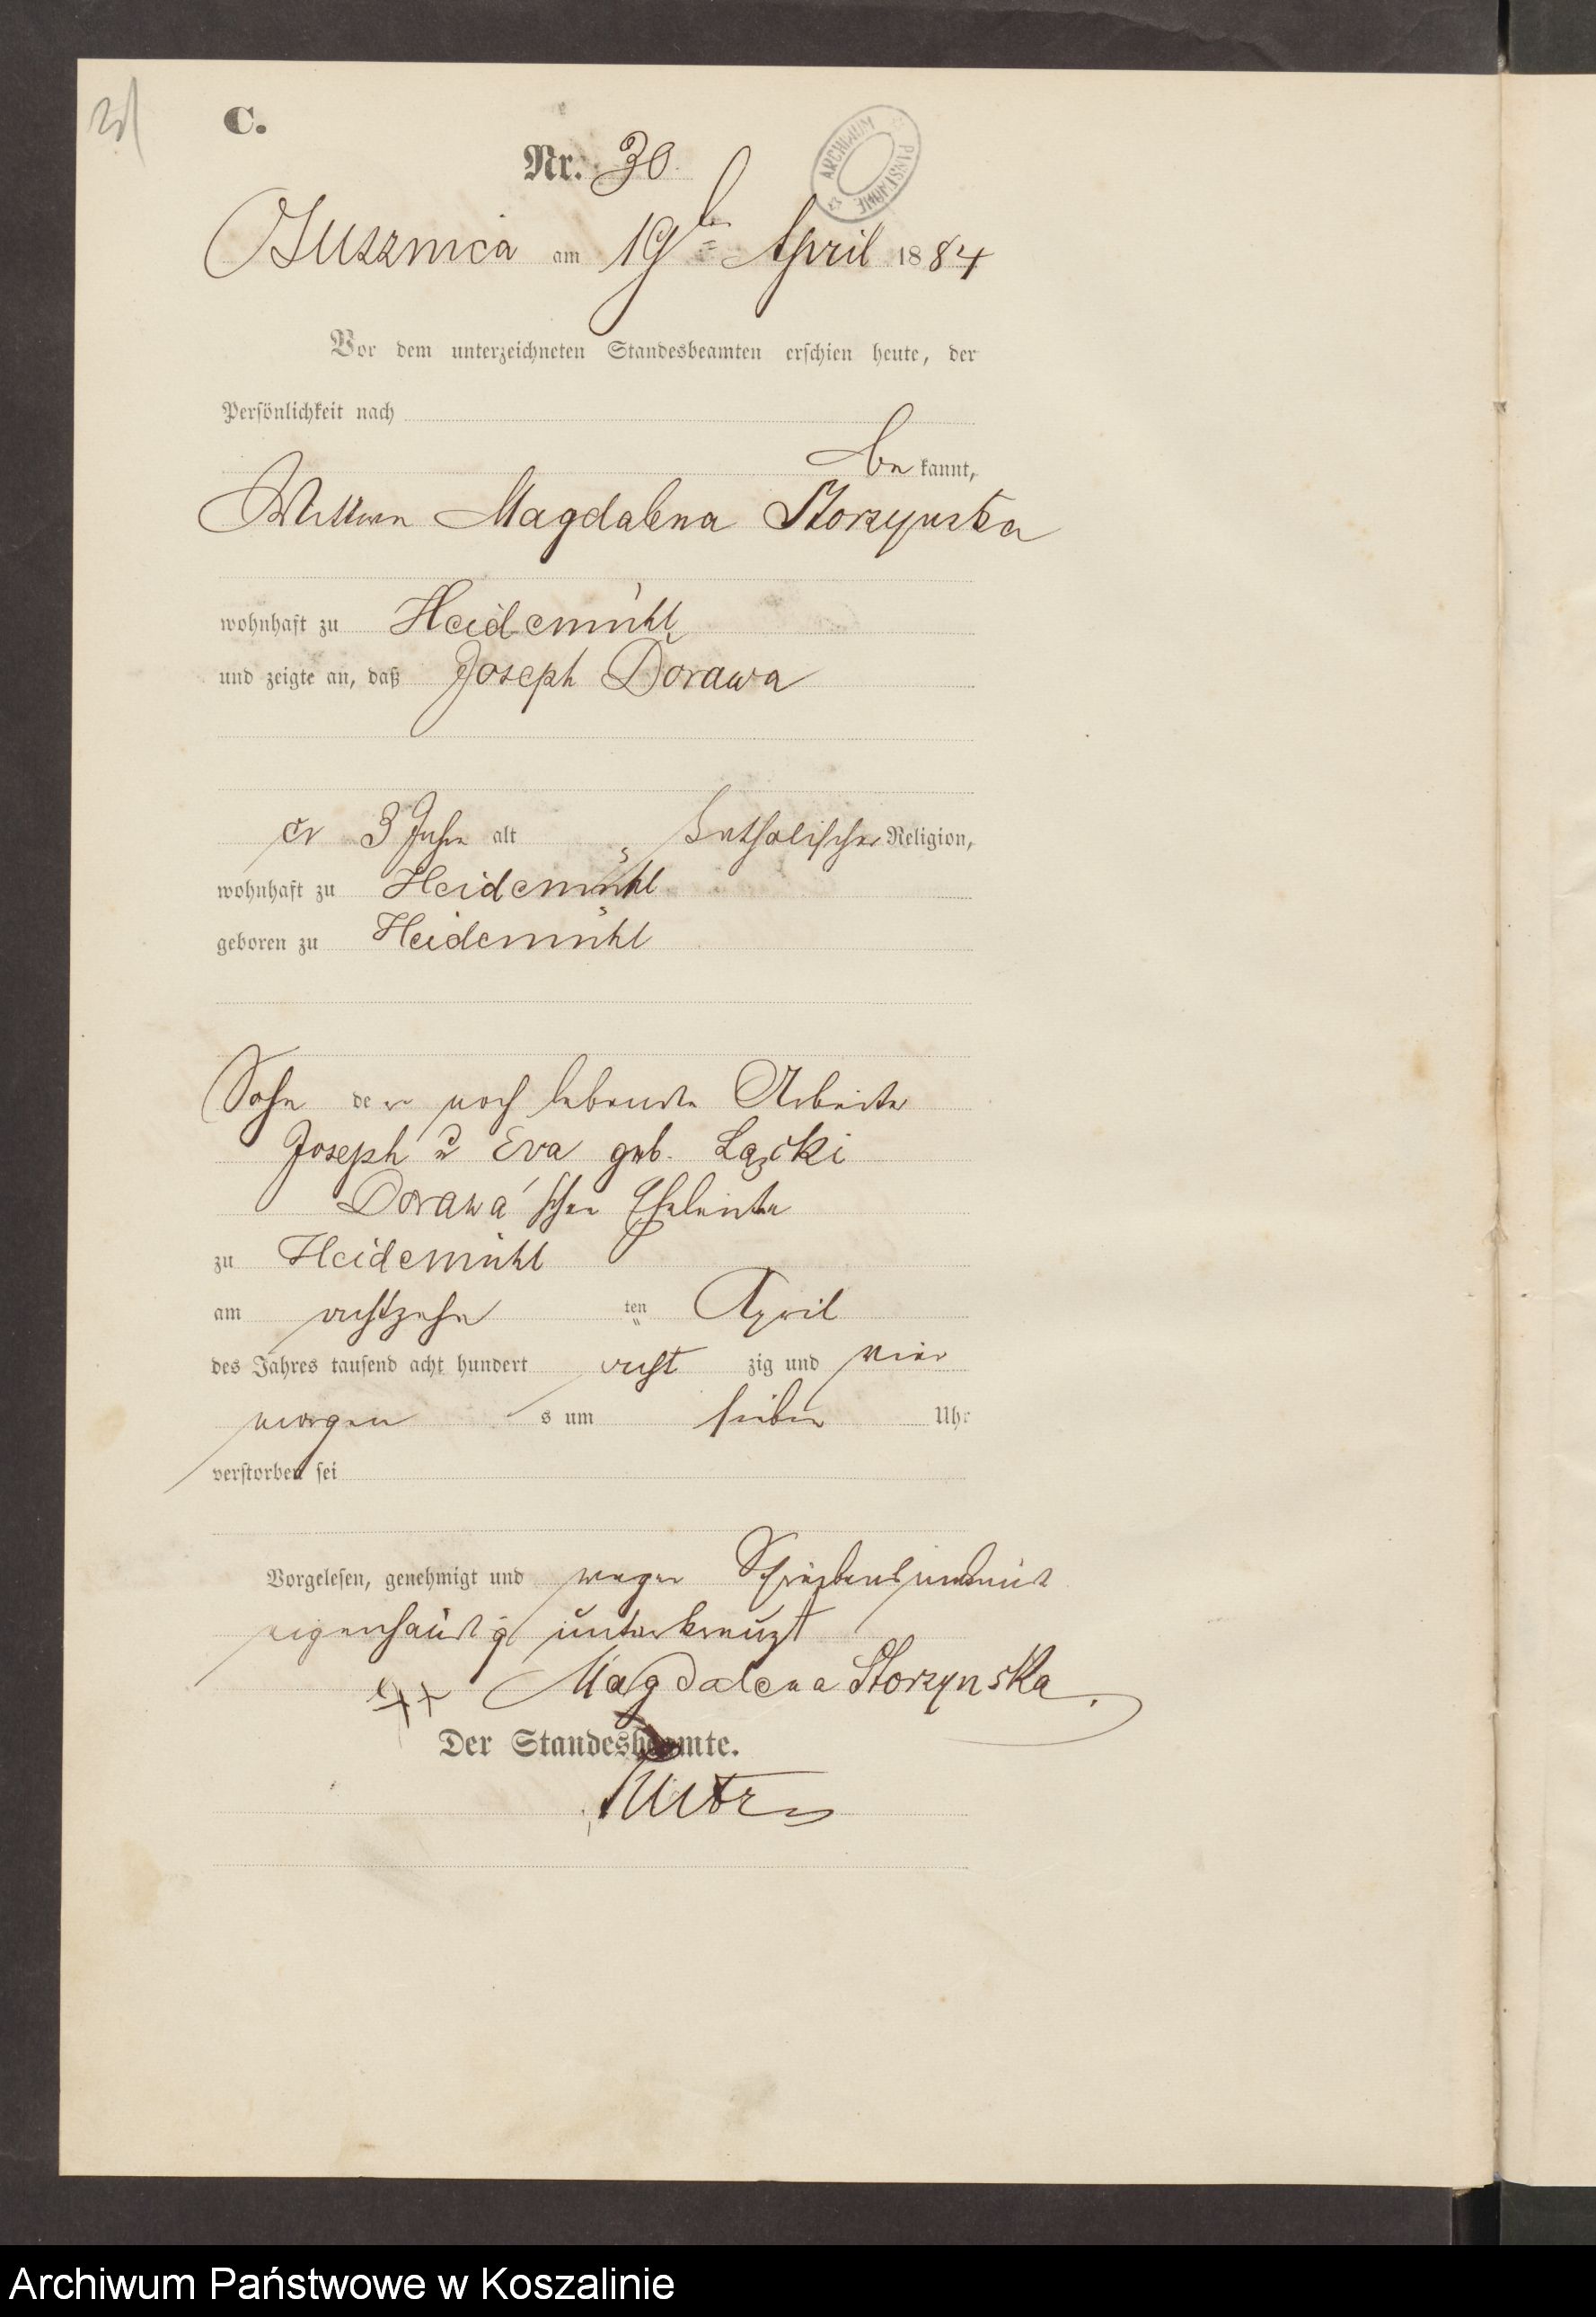 C.
Nr. 30.
ARCHIWUM PAŃSTWOWE
am 19te April 1884
Vor dem unterzeichneten Standesbeamten erschien heute, der
Persönlichkeit nach
be kannt,
Wittwe Magdalena Storzynska
wohnhaft zu Heidemühl
und zeigte an, daß Joseph Dorawa
er 3 Jahre alt katholischer Religion,
wohnhaft zu Heidemühl
geboren zu Heidemühl
Sohn der noch lebende Arbeiter
Joseph u Eva geb.
Dorawa'schen Eheleute
zu Heidemühl
am achtzehn ten April
des Jahres tausend acht hundert acht zig und vier
morgen s um sieben Uhr
verstorben sei
Vorgelesen, genehmigt und wegen
eigenhändig unterkreuzt
+++ Magdalena Storzynska
Der Standesbeamte.
Archiwum Państwowe w Koszalinie